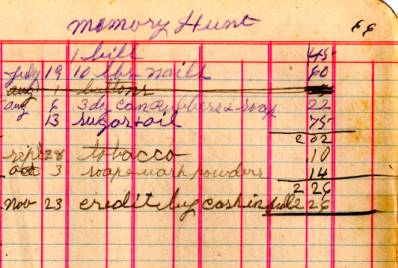 Memory Hunt
1 bill 45
July 19 10 lbs nails 60
aug 1 buttons
aug 6 3 dz can rubbers & soap 22
13 sugar & oil 75
2 02
sept 28 tobacco .10
oct 3 soap & wash powders 14
2 26
Nov 23 credit by cash in full 2 26